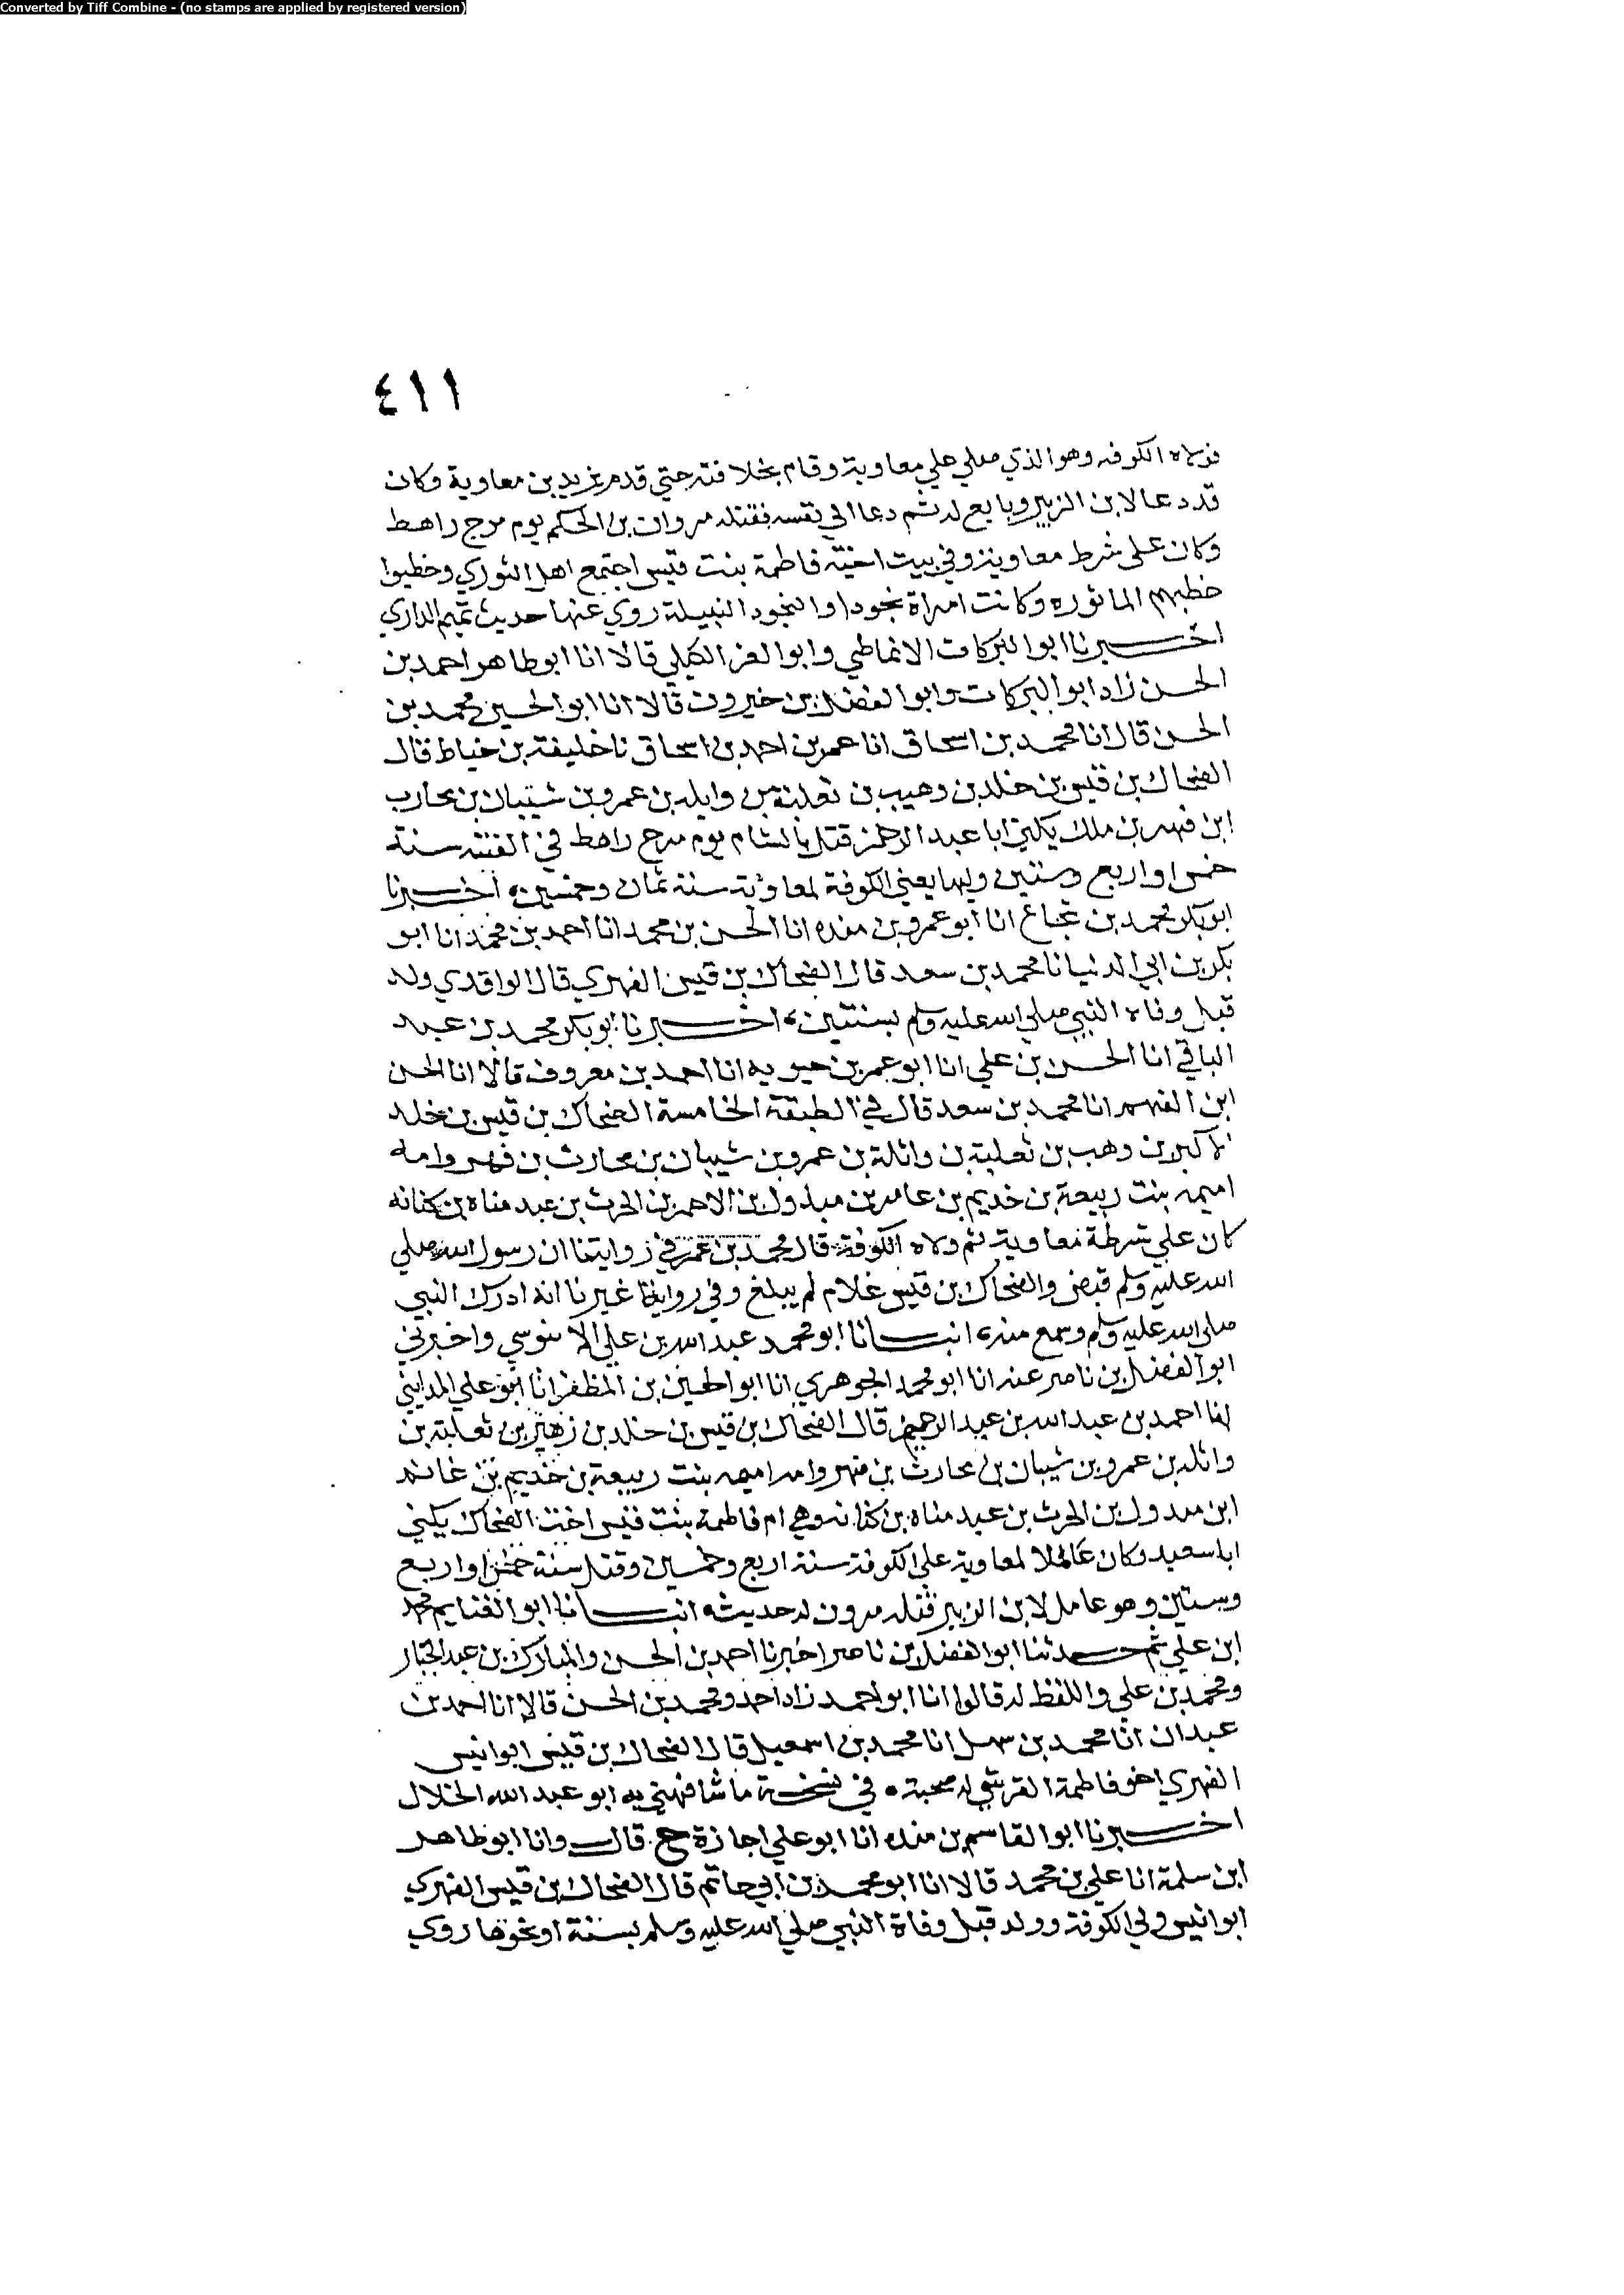 Converted by Tiff Combine - (no stamps are applied by registered version)
٤١١
فولاه الكوفه وهو الذي صلي علي معاوية وقام بخلافته حتي قدم يزيد بن معاوية وكان
قد دعا لابن الزبير وبايع له ثم دعا الي نفسه فقتله مروان بن الحكم يوم مرج راهط
وكان علي شرط معاوية وفي بيت اخته فاطمة بنت قيس اجتمع اهل الشوري وخطبوا
خطبهم الماثوره وكانت امراة نجودا والنجود النبيلة روي عنها حديث تميم الداري
اخبرنا ابو البركات الانماطي وابو العز الكيلي قالا انا ابو طاهر احمد بن
الحسن زاد ابو البركات وابو الفضل بن خيرون قالا انا ابو الحسين محمد بن
الحسن قال انا محمد بن اسحاق انا عمر بن احمد بن اسحاق نا خليفة بن خياط قال
الضحاك بن قيس بن خلد بن وهيب بن ثعلبة بن وايله بن عمرو بن شيبان بن محارب
ابن فهر بن ملك يكني ابا عبد الرحمن قتل بالشام يوم مرج راهط في الفتنه سنة
خمس او اربع وستين وليها يعني الكوفة لمعاوية سنة ثمان وخمسين، اخبرنا
ابو بكر محمد بن شجاع انا ابو عمرو بن منده انا الحسن بن محمد انا احمد بن محمد انا ابو
بكر بن ابي الدنيا نا محمد بن سعد قال الضحاك بن قيس الفهري قال الواقدي ولد
قبل وفاه النبي صلي الله عليه وسلم بسنتين، اخبرنا ابو بكر محمد بن عبد
الباقي انا الحسن بن علي انا ابو عمر بن حيويه انا احمد بن معروف قالا انا الحسن
ابن الفهم انا محمد بن سعد قال في الطبقة الخامسة الضحاك بن قيس بن خلد
الاكبر بن وهب بن ثعلبة بن وائلة بن عمرو بن شيبان بن محارث بن فهر وامه
اميمه بنت ربيعة بن خديم بن عامر بن مبذول بن الاحمر بن الحرث بن عبد مناه بن كنانه
كان علي شرطة معاوية ثم ولاه الكوفة قال محمد بن عمر في روايتنا ان رسول الله صلي
الله عليه وسلم قبض والضحاك بن قيس غلام لم يبلغ وفي رواية غيرنا انه ادرك النبي
صلي الله عليه وسلم وسمع منه، انبانا ابو محمد عبد الله بن علي الابنوسي واخبرني
ابو الفضل بن ناصر عنه انا ابو محمد الجوهري انا ابو الحسين بن المظفر انا ابو علي المدايني
انا احمد بن عبد الله بن عبد الرحيم قال الضحاك بن قيس بن خلد بن زهير بن ثعلبة بن
وائله بن عمرو بن شيبان بن محارث بن فهر وامه اميمه بنت ربيعة بن خديم بن غانم
ابن مبدول بن الحرث بن عبد مناه بن كنانه وهي ام فاطمة بنت قيس اخت الضحاك يكني
ابا سعيد وكان عاملا لمعاوية علي الكوفة سنة اربع وخمسين وقتل سنة خمس او اربع
وستين وهو عامل لابن الزبير قتله مرون له حديث، انبانا ابو الغنايم محمد
ابن علي ثم حدثنا ابو الفضل بن ناصر اخبرنا احمد بن الحسن والمبارك بن عبد الجبار
ومحمد بن علي واللفظ له قالوا انا ابو احمد زاد احمد ومحمد بن الحسن قالا انا احمد بن
عبدان انا محمد بن سهل انا محمد بن اسمعيل قال الضحاك بن قيس ابو انيس
الفهري اخو فاطمة القرشي له صحبة، في نسخة ما شافهني به ابو عبد الله الخلال
اخبرنا ابو القاسم بن منده انا ابو علي اجازة ح قال وانا ابو طاهر
ابن سلمة انا علي بن محمد قالا انا ابو محمد بن ابي حاتم قال الضحاك بن قيس الفهري
ابو انيس ولي الكوفة وولد قبل وفاة النبي صلي الله عليه وسلم بسنة او نحوها روي